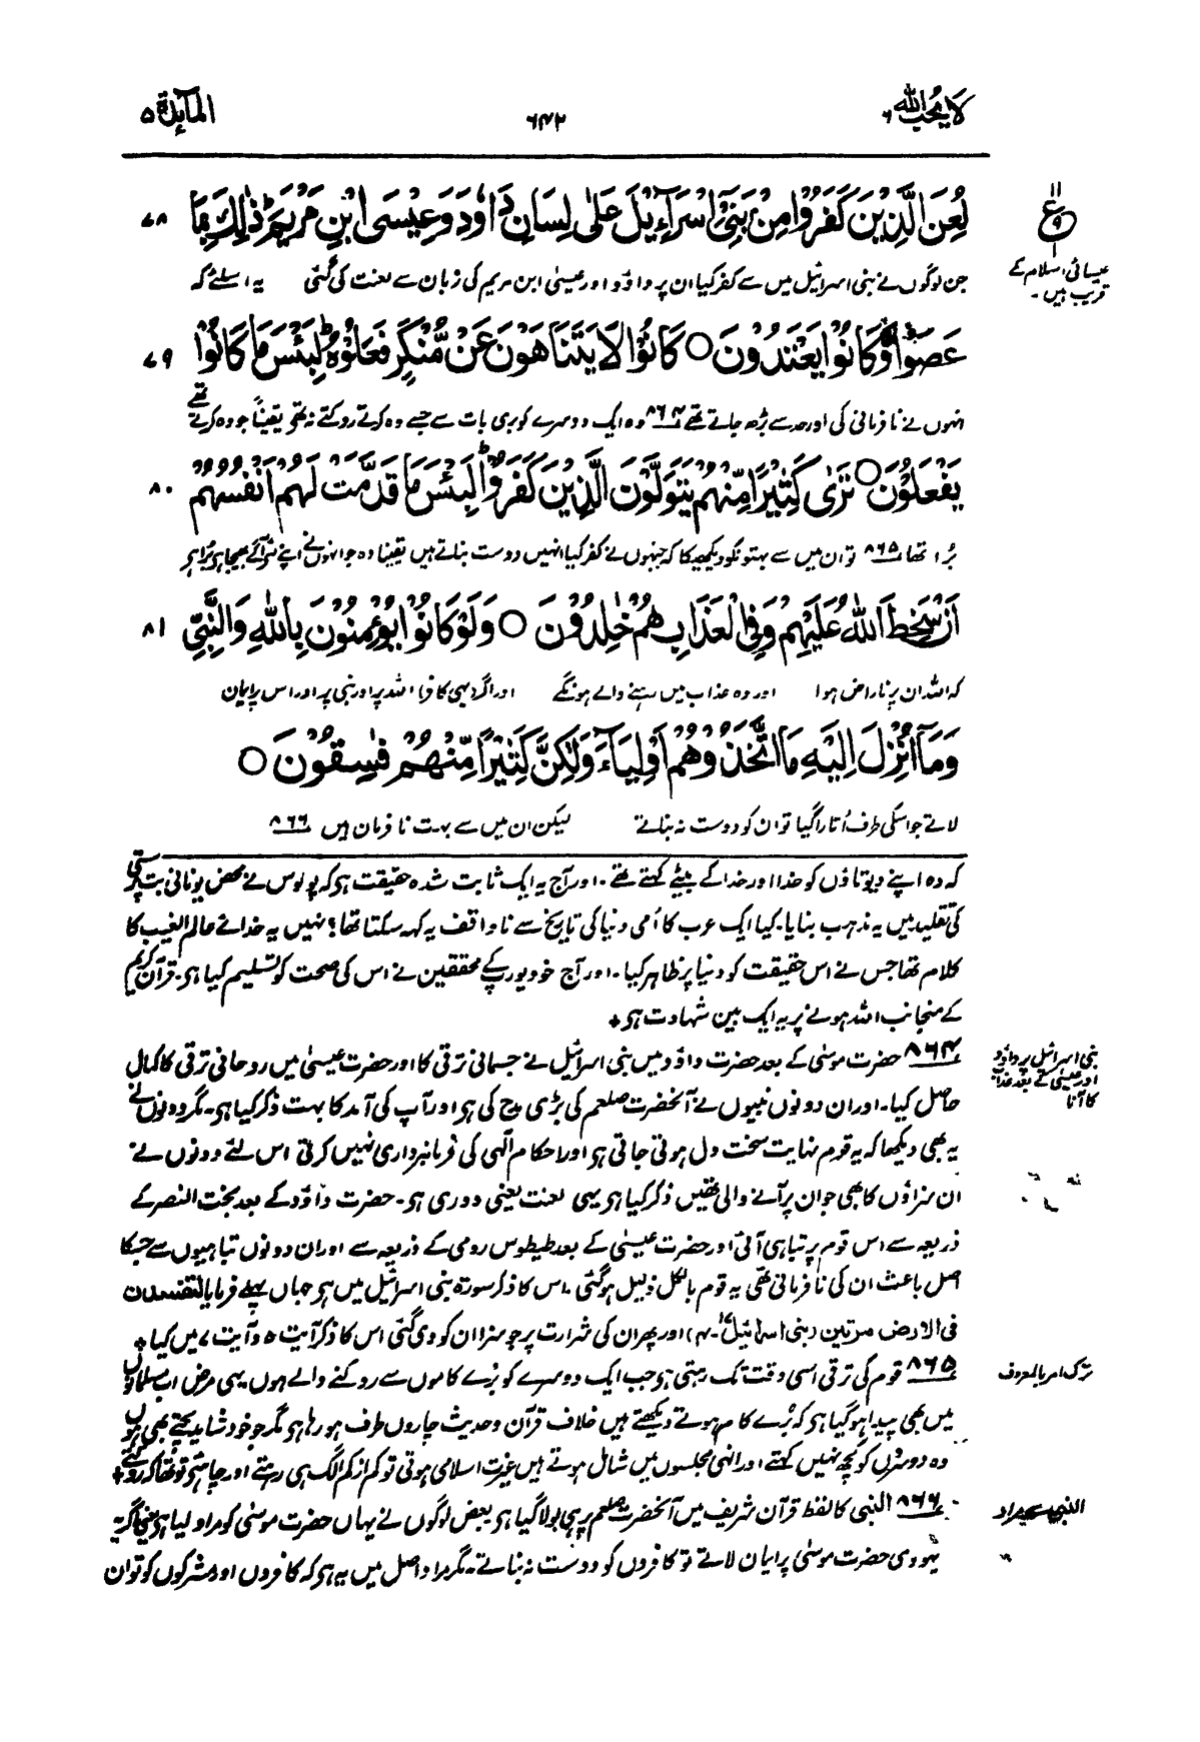 لا یحب اللہ ۶
۶۴۲
المآئدۃ ۵
لُعِنَ الَّذِيْنَ كَفَرُوْا مِنْۢ بَنِيْٓ اِسْرَآءِيْلَ عَلٰى لِسَانِ دَاوٗدَ وَعِيْسَى ابْنِ مَرْيَمَ ؕ ذٰلِكَ بِمَا ۷۸
جن لوگوں نے بنی اسرائیل میں سے کفر کیا ان پر داؤد اور عیسیٰ ابن مریم کی زبان سے لعنت کی گئی یہ اسلئے کہ
عَصَوْا وَّكَانُوْا يَعْتَدُوْنَ ○ كَانُوْا لَا يَتَنَاهَوْنَ عَنْ مُّنْكَرٍ فَعَلُوْهُ ؕ لَبِئْسَ مَا كَانُوْا ۷۹
انہوں نے نافرمانی کی اور حد سے بڑھ جاتے تھے ۸۶۴ وہ ایک دوسرے کو بری بات سے جسے وہ کرتے روکتے نہ تھے یقیناً جو وہ کرتے تھے
يَفْعَلُوْنَ ○ تَرٰى كَثِيْرًا مِّنْهُمْ يَتَوَلَّوْنَ الَّذِيْنَ كَفَرُوْا ؕ لَبِئْسَ مَا قَدَّمَتْ لَهُمْ اَنْفُسُهُمْ ۸۰
بُرا تھا ۸۶۵ تو ان میں سے بہتونکو دیکھیگا کہ جنہوں نے کفر کیا انہیں دوست بناتے ہیں یقیناً وہ جو انہوں نے اپنے لئے آگے بھیجا ہو بُرا ہو
اَنْ سَخِطَ اللّٰهُ عَلَيْهِمْ وَفِي الْعَذَابِ هُمْ خٰلِدُوْنَ ○ وَلَوْ كَانُوْا يُؤْمِنُوْنَ بِاللّٰهِ وَالنَّبِيِّ ۸۱
کہ اللہ ان پر ناراض ہوا اور وہ عذاب میں رہنے والے ہونگے اور اگر یہی کافر اللہ پر اور نبی پر اور اس پر ایمان
وَمَآ اُنْزِلَ اِلَيْهِ مَا اتَّخَذُوْهُمْ اَوْلِيَآءَ وَلٰكِنَّ كَثِيْرًا مِّنْهُمْ فٰسِقُوْنَ ○
لاتے جو اسکی طرف اُتارا گیا تو ان کو دوست نہ بناتے لیکن ان میں سے بہت نافرمان ہیں ۸۶۶
کہ وہ اپنے دیوتاؤں کو خدا اور خدا کے بیٹے کہتے تھے۔ اور آج یہ ایک ثابت شدہ حقیقت ہو کہ پولوس نے محض یونانی بت پرستی
کی تقلید میں یہ مذہب بنایا۔ کیا ایک عرب کا اُمی دنیا کی تاریخ سے ناواقف یہ کہہ سکتا تھا؟ نہیں یہ خدائے عالم الغیب کا
کلام تھا جس نے اس حقیقت کو دنیا پر ظاہر کیا۔ اور آج خود یورپ کے محققین نے اس کی صحت کو تسلیم کیا ہو۔ قرآن کریم
کے منجانب اللہ ہونے پر یہ ایک بین شہادت ہو +
۸۶۴ حضرت موسیٰ کے بعد حضرت داؤد میں بنی اسرائیل نے جسمانی ترقی کا اور حضرت عیسیٰ میں روحانی ترقی کا کمال
حاصل کیا۔ اور ان دونوں نبیوں نے آنحضرت صلعم کی بڑی مدح کی ہو اور آپ کی آمد کا بہت ذکر کیا ہو۔ مگر دونوں نے
یہ بھی دیکھا کہ یہ قوم نہایت سخت دل ہوتی جاتی ہو اور احکام الٰہی کی فرمانبرداری نہیں کرتی اس لئے دونوں نے
ان سزاؤں کا بھی جو ان پر آنے والی تھیں ذکر کیا ہو یہی لعنت یعنی دوری ہو۔ حضرت داؤد کے بعد بخت النصر کے
ذریعہ سے اس قوم پر تباہی آئی اور حضرت عیسیٰ کے بعد طیطوس رومی کے ذریعہ سے اور ان دونوں تباہیوں سے جنکا
اصل باعث ان کی نافرمانی تھی یہ قوم بالکل ذلیل ہو گئی۔ اس کا ذکر سورۃ بنی اسرائیل میں ہو جہاں پہلے فرمایا لتفسدن
فی الارض مرتین (بنی اسرائیل ۱۷-۴) اور پھر ان کی شرارت پر جو سزا ان کو دی گئی اس کا ذکر آیت ۵ و آیت ۷ میں کیا +
۸۶۵ قوم کی ترقی اسی وقت تک رہتی ہو جب ایک دوسرے کو بُرے کاموں سے روکنے والے ہوں یہی مرض اب مسلمانوں
میں بھی پیدا ہو گیا ہو کہ بُرے کام ہوتے دیکھتے ہیں خلاف قرآن و حدیث چاروں طرف ہو رہا ہو مگر جو خود شاید بچتے بھی ہوں
وہ دوسروں کو کچھ نہیں کہتے اور انہی مجلسوں میں شامل ہوتے ہیں غیرت اسلامی ہوتی تو کم از کم الگ ہی رہتے اور چاہئے تو تھا کہ روکتے +
۸۶۶ النبی کا لفظ قرآن شریف میں آنحضرت صلعم پر ہی بولا گیا ہو بعض لوگوں نے یہاں حضرت موسیٰ کو مراد لیا ہو یعنی اگر یہ
یہودی حضرت موسیٰ پر ایمان لاتے تو کافروں کو دوست نہ بناتے۔ مگر مراد اصل میں یہ ہو کہ کافروں اور مشرکوں کو تو ان
ع
عیسائی اسلام کے
قریب ہیں۔
بنی اسرائیل پر داؤد
اور عیسیٰ کے بعد عذاب
کا آنا
ترک امر بالمعروف
النبی سے مراد